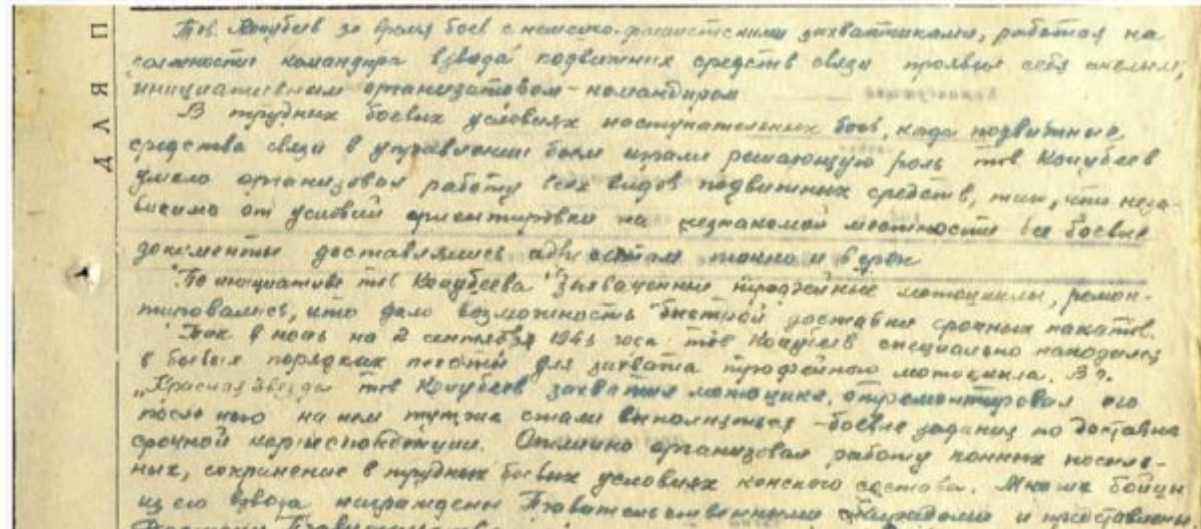 Тов. Коцубеев за время боев с немецко-фашистскими захватчиками, работая на
должности командира взвода подвижных средств связи проявил себя смелым,
инициативным организатором-командиром
В трудных боевых условиях наступательных боев, когда подвижные
средства связи в управлении боем играли решающую роль тов Коцубеев
умело организовал работу всех видов подвижных средств, так, что неза-
висимо от условий ориентировки на незнакомой местности все боевые
документы доставлялись адресатам точно и в срок
По инициативе тов Коцубеева захваченные трофейные мотоциклы, ремон-
тировались, что дало возможность быстрой доставки срочных пакетов.
Так в ночь на 2 сентября 1943 года тов Коцубеев специально находился
в боевых порядках пехоты для захвата трофейного мотоцикла. В
"Красная Звезда тов Коцубеев захватил мотоцикл, отремонтировал его
после чего на нем тут же стали выполняться -боевые задания по доставке
срочной корреспонденции. Отлично организовал работу конных посыль-
ных, сохранение в трудных боевых условиях конского состава. Многие бойцы
из его взвода награждены Правительственными наградами и представлены
П
Я
Л
Д